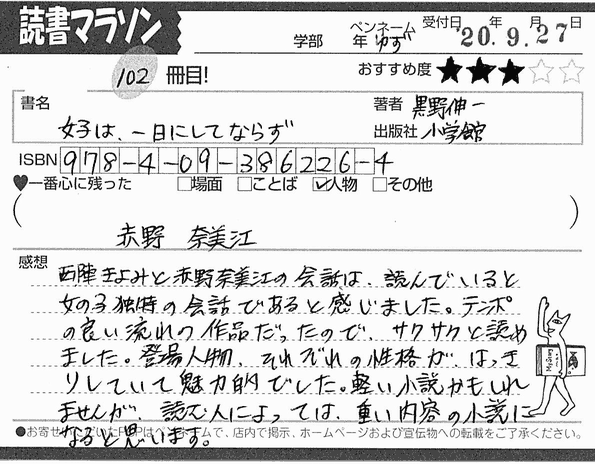 読書マラソン
学部 年
ペンネーム ゆず
受付日 '20年 9月27日
102 冊目!
おすすめ度 ★★★☆☆
書名
女子は、一日にしてならず
著者 黒野伸一
出版社 小学館
ISBN 978-4-09-386226-4
♥一番心に残った □場面 □ことば ☑人物 □その他
( 赤野 奈美江 )
感想
西陣きよみと赤野奈美江の会話は、読んでいると
女の子独特の会話であると感じました。テンポ
の良い流れの作品だったので、サクサクと読め
ました。登場人物、それぞれの性格が、はっき
りしていて魅力的でした。軽い小説かもしれ
ませんが、読む人によっては、重い内容の小説に
なると思います。
●お寄せいただいたPOPはペンネームで、店内で掲示、ホームページおよび宣伝物への転載をご了承ください。